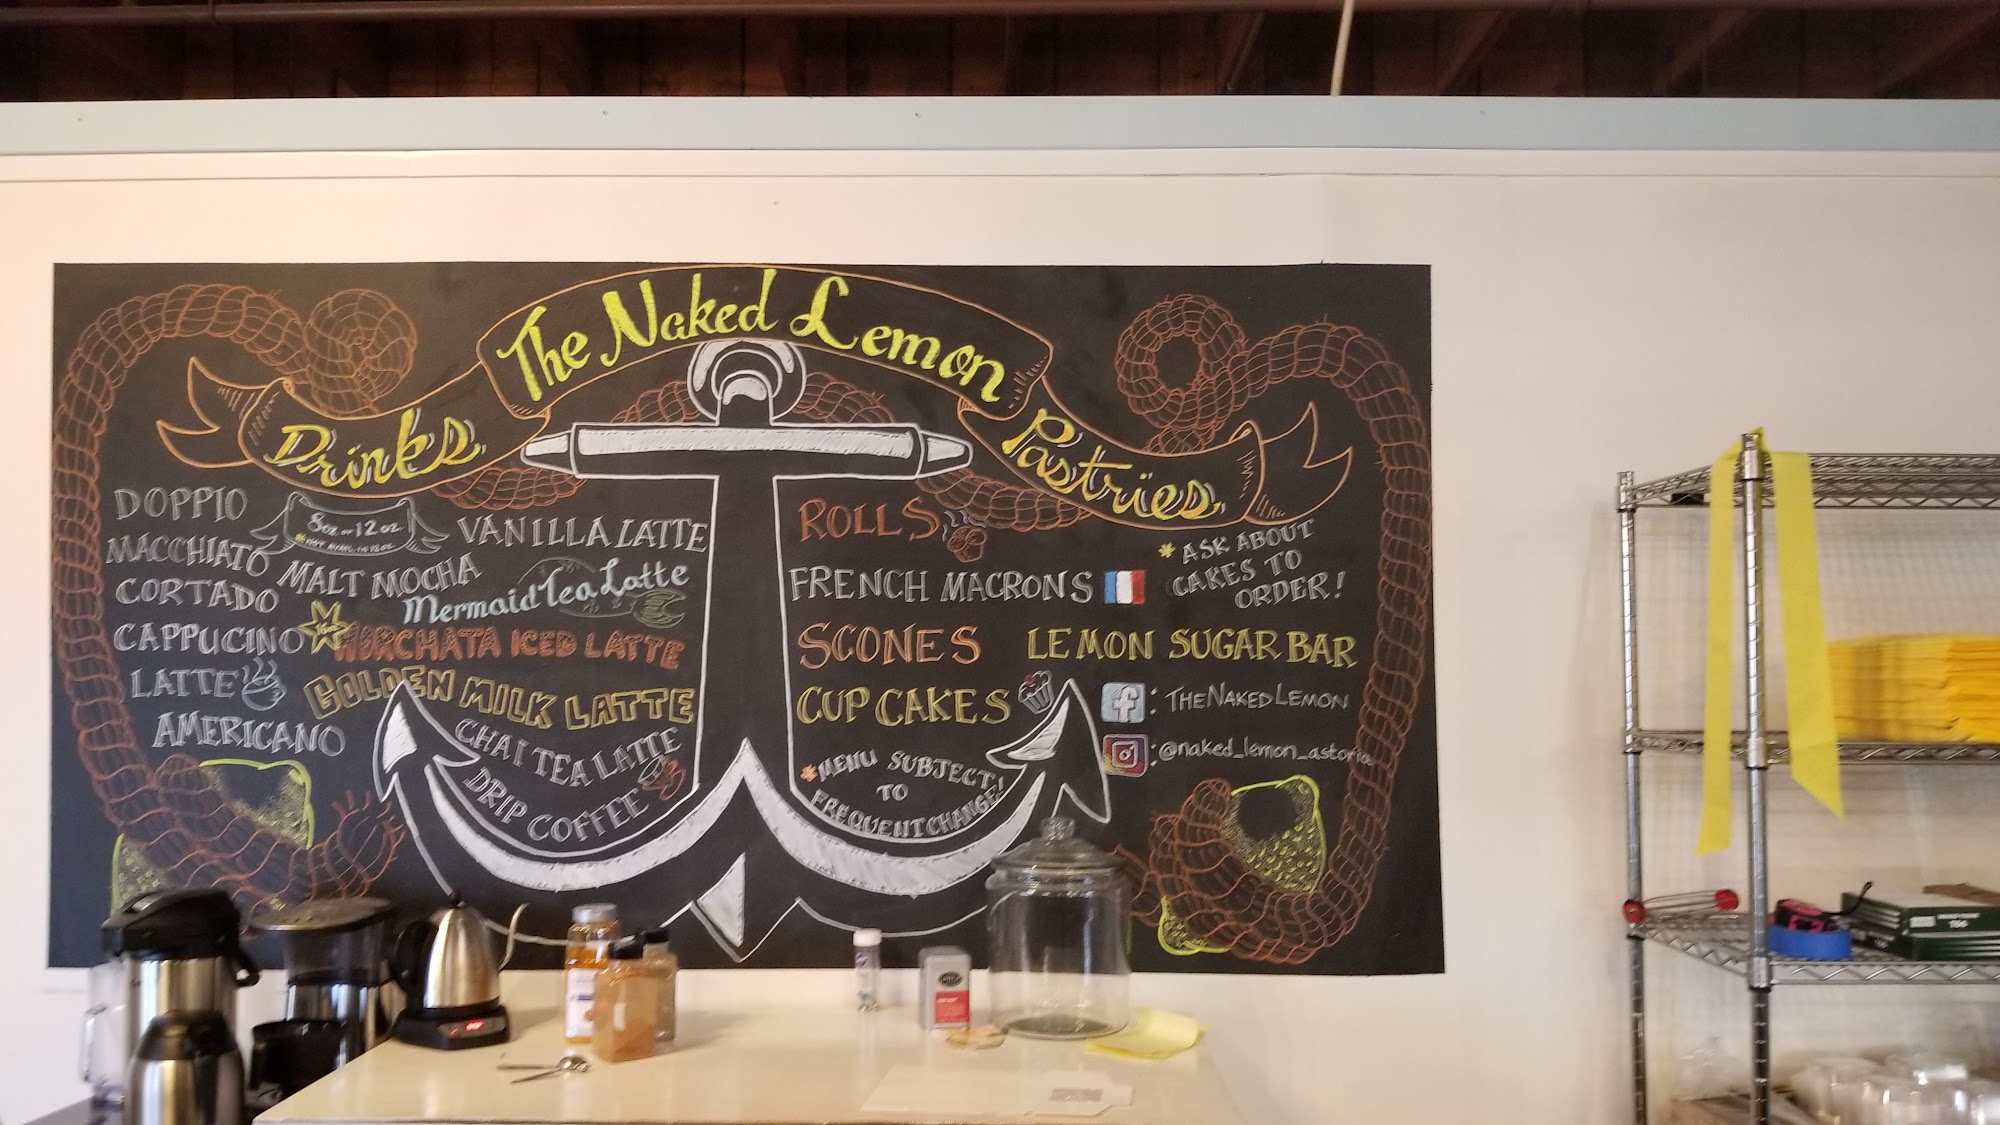 The Naked Lemon
Drinks
DOPPIO
MACCHIATO
CORTADO
CAPPUCINO
LATTE
AMERICANO
8oz or 12oz
*NOT AVAIL. IN 12oz.
VANILLA LATTE
MALT MOCHA
Mermaid Tea Latte
16oz
HORCHATA ICED LATTE
GOLDEN MILK LATTE
CHAI TEA LATTE
DRIP COFFEE
Pastries
ROLLS
FRENCH MACRONS
SCONES
CUP CAKES
*MENU SUBJECT
TO
FREQUENT CHANGE!
*ASK ABOUT
CAKES TO
ORDER!
LEMON SUGAR BAR
f : THENAKEDLEMON
: @naked_lemon_astoria